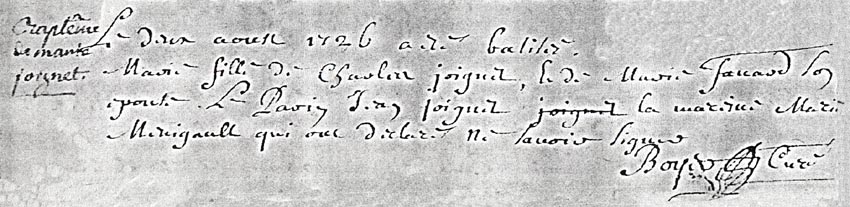 Baptême
de marie
joignet.
Le deux aoust 1726 a été batisée
Marie fille de Charles joignet, et de Marie Favard son
épouse. Le Parin Jean joignet joignet la marine Marie
Merigault qui ont declaré ne savoir signer
Boyer Curé